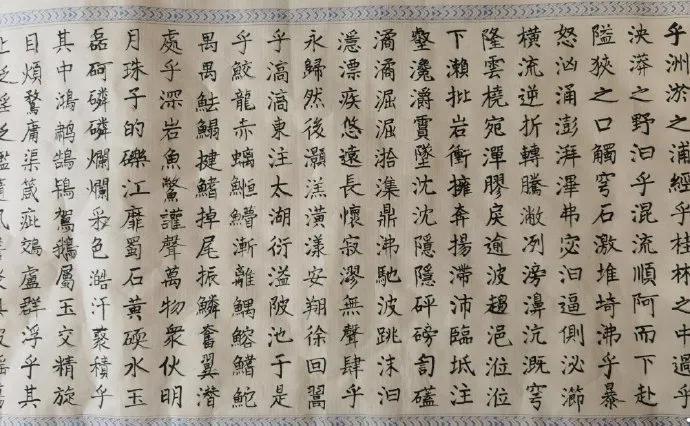 乎洲淤之浦經乎桂林之中過乎
泱漭之野汩乎混流順阿而下赴
隘狹之口觸穹石激堆埼沸乎暴
怒洶涌澎湃滭弗宓汩逼側泌瀄
橫流逆折轉騰潎洌滂濞沆溉穹
隆雲橈宛潬膠戾逾波趨浥涖涖
下瀨批岩衝擁奔揚滯沛臨坻注
壑瀺灂霣墜沈沈隱隱砰磅訇礚
潏潏淈淈湁潗鼎沸馳波跳沫汩
漂疾悠遠長懷寂漻無聲肆乎
永歸然後灝溔潢漾安翔徐回翯
乎滈滈東注太湖衍溢陂池于是
乎鮫龍赤螭䱍䲛漸離鰅鰫鮀
禺禺魼鰨揵鰭掉尾振鱗奮翼潛
處乎深岩魚鱉讙聲萬物衆伙明
月珠子的礫江靡蜀石黃碝水玉
磊砢磷磷爛爛采色澔汗藂積乎
其中鴻鷫鵠鴇鴐鵝屬玉交精旋
目煩鶩庸渠箴疵鵁盧群浮乎其